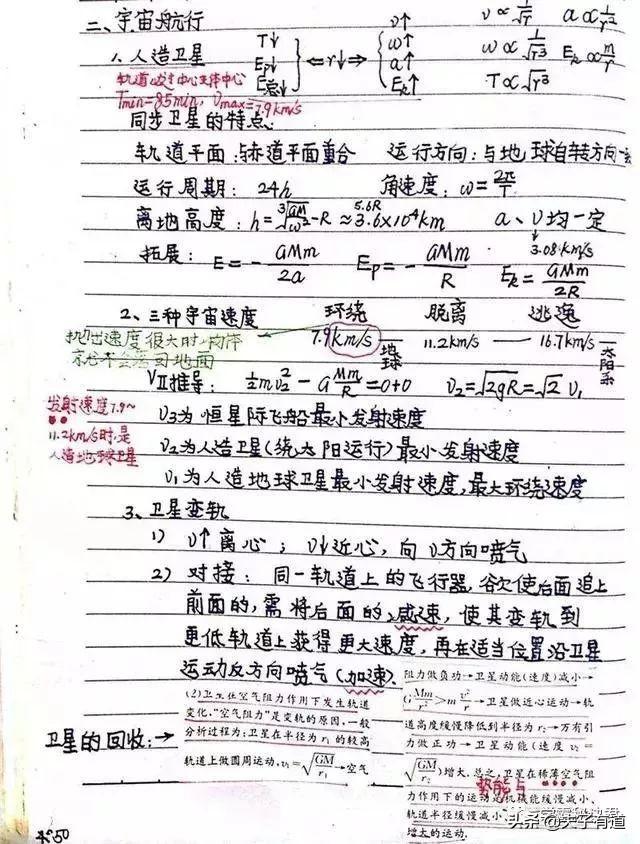 二、宇宙航行
1. 人造卫星
T↓
Ep↓
E总↓
⇔ r↓ ⇒
v↑
ω↑
a↑
Ek↑
v∝1/√r a∝1/r²
ω∝1/√r³ Ek∝m/r
T∝√r³
轨道必过中心天体中心
Tmin=85min, vmax=7.9km/s
同步卫星的特点:
轨道平面:与赤道平面重合 运行方向:与地球自转方向一致
运行周期: 24h 角速度: ω=2π/T
离地高度: h=∛(GM/ω²)-R≈3.6×10⁴km a、v均一定
5.6R
3.08km/s
拓展: E=-GMm/2a Ep=-GMm/R Ek=GMm/2R
2、三种宇宙速度 环绕 脱离 逃逸
7.9km/s 地球 11.2km/s — 16.7km/s 太阳系
抛出速度很大时,物体
就不会落回地面
VⅡ推导: ½mv₂²-GMm/R=0+0 v₂=√2gR=√2 v₁
发射速度7.9~
11.2km/s时,是
人造地球卫星
v3为恒星际飞船最小发射速度
v2为人造卫星(绕太阳运行)最小发射速度
v1为人造地球卫星最小发射速度,最大环绕速度
3、卫星变轨
1) v↑离心; v↓近心,向v方向喷气
2) 对接: 同一轨道上的飞行器,欲使后面追上
前面的,需将后面的减速,使其变轨到
更低轨道上获得更大速度,再在适当位置沿卫星
运动反方向喷气(加速).
卫星的回收:→
(2)卫星在空气阻力作用下发生轨道
变化,“空气阻力”是变轨的原因,一般
分析过程为:卫星在半径为r₁的较高
轨道上做圆周运动,v₁=√(GM/r₁)→空气
阻力做负功→卫星动能(速度)减小→
GMm/r²>mv²/r→卫星做近心运动→轨
道高度缓慢降低到半径为r₂→万有引
力做正功→卫星动能(速度v₂=
√(GM/r₂))增大.总之,卫星在稀薄空气阻
势能与
力作用下的运动是机械能缓慢减小、
轨道半径缓慢减小、
增大的运动.
头条@大学有道